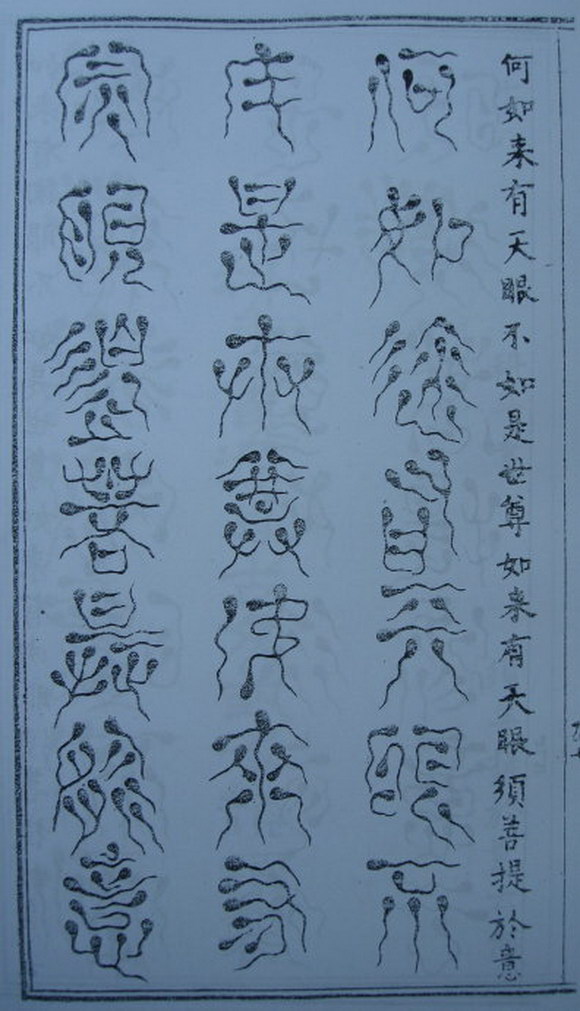 何如来有天眼不如是世尊如来有天眼須菩提於意
何如來有天眼不
如是世尊如來有
天眼須菩提於意